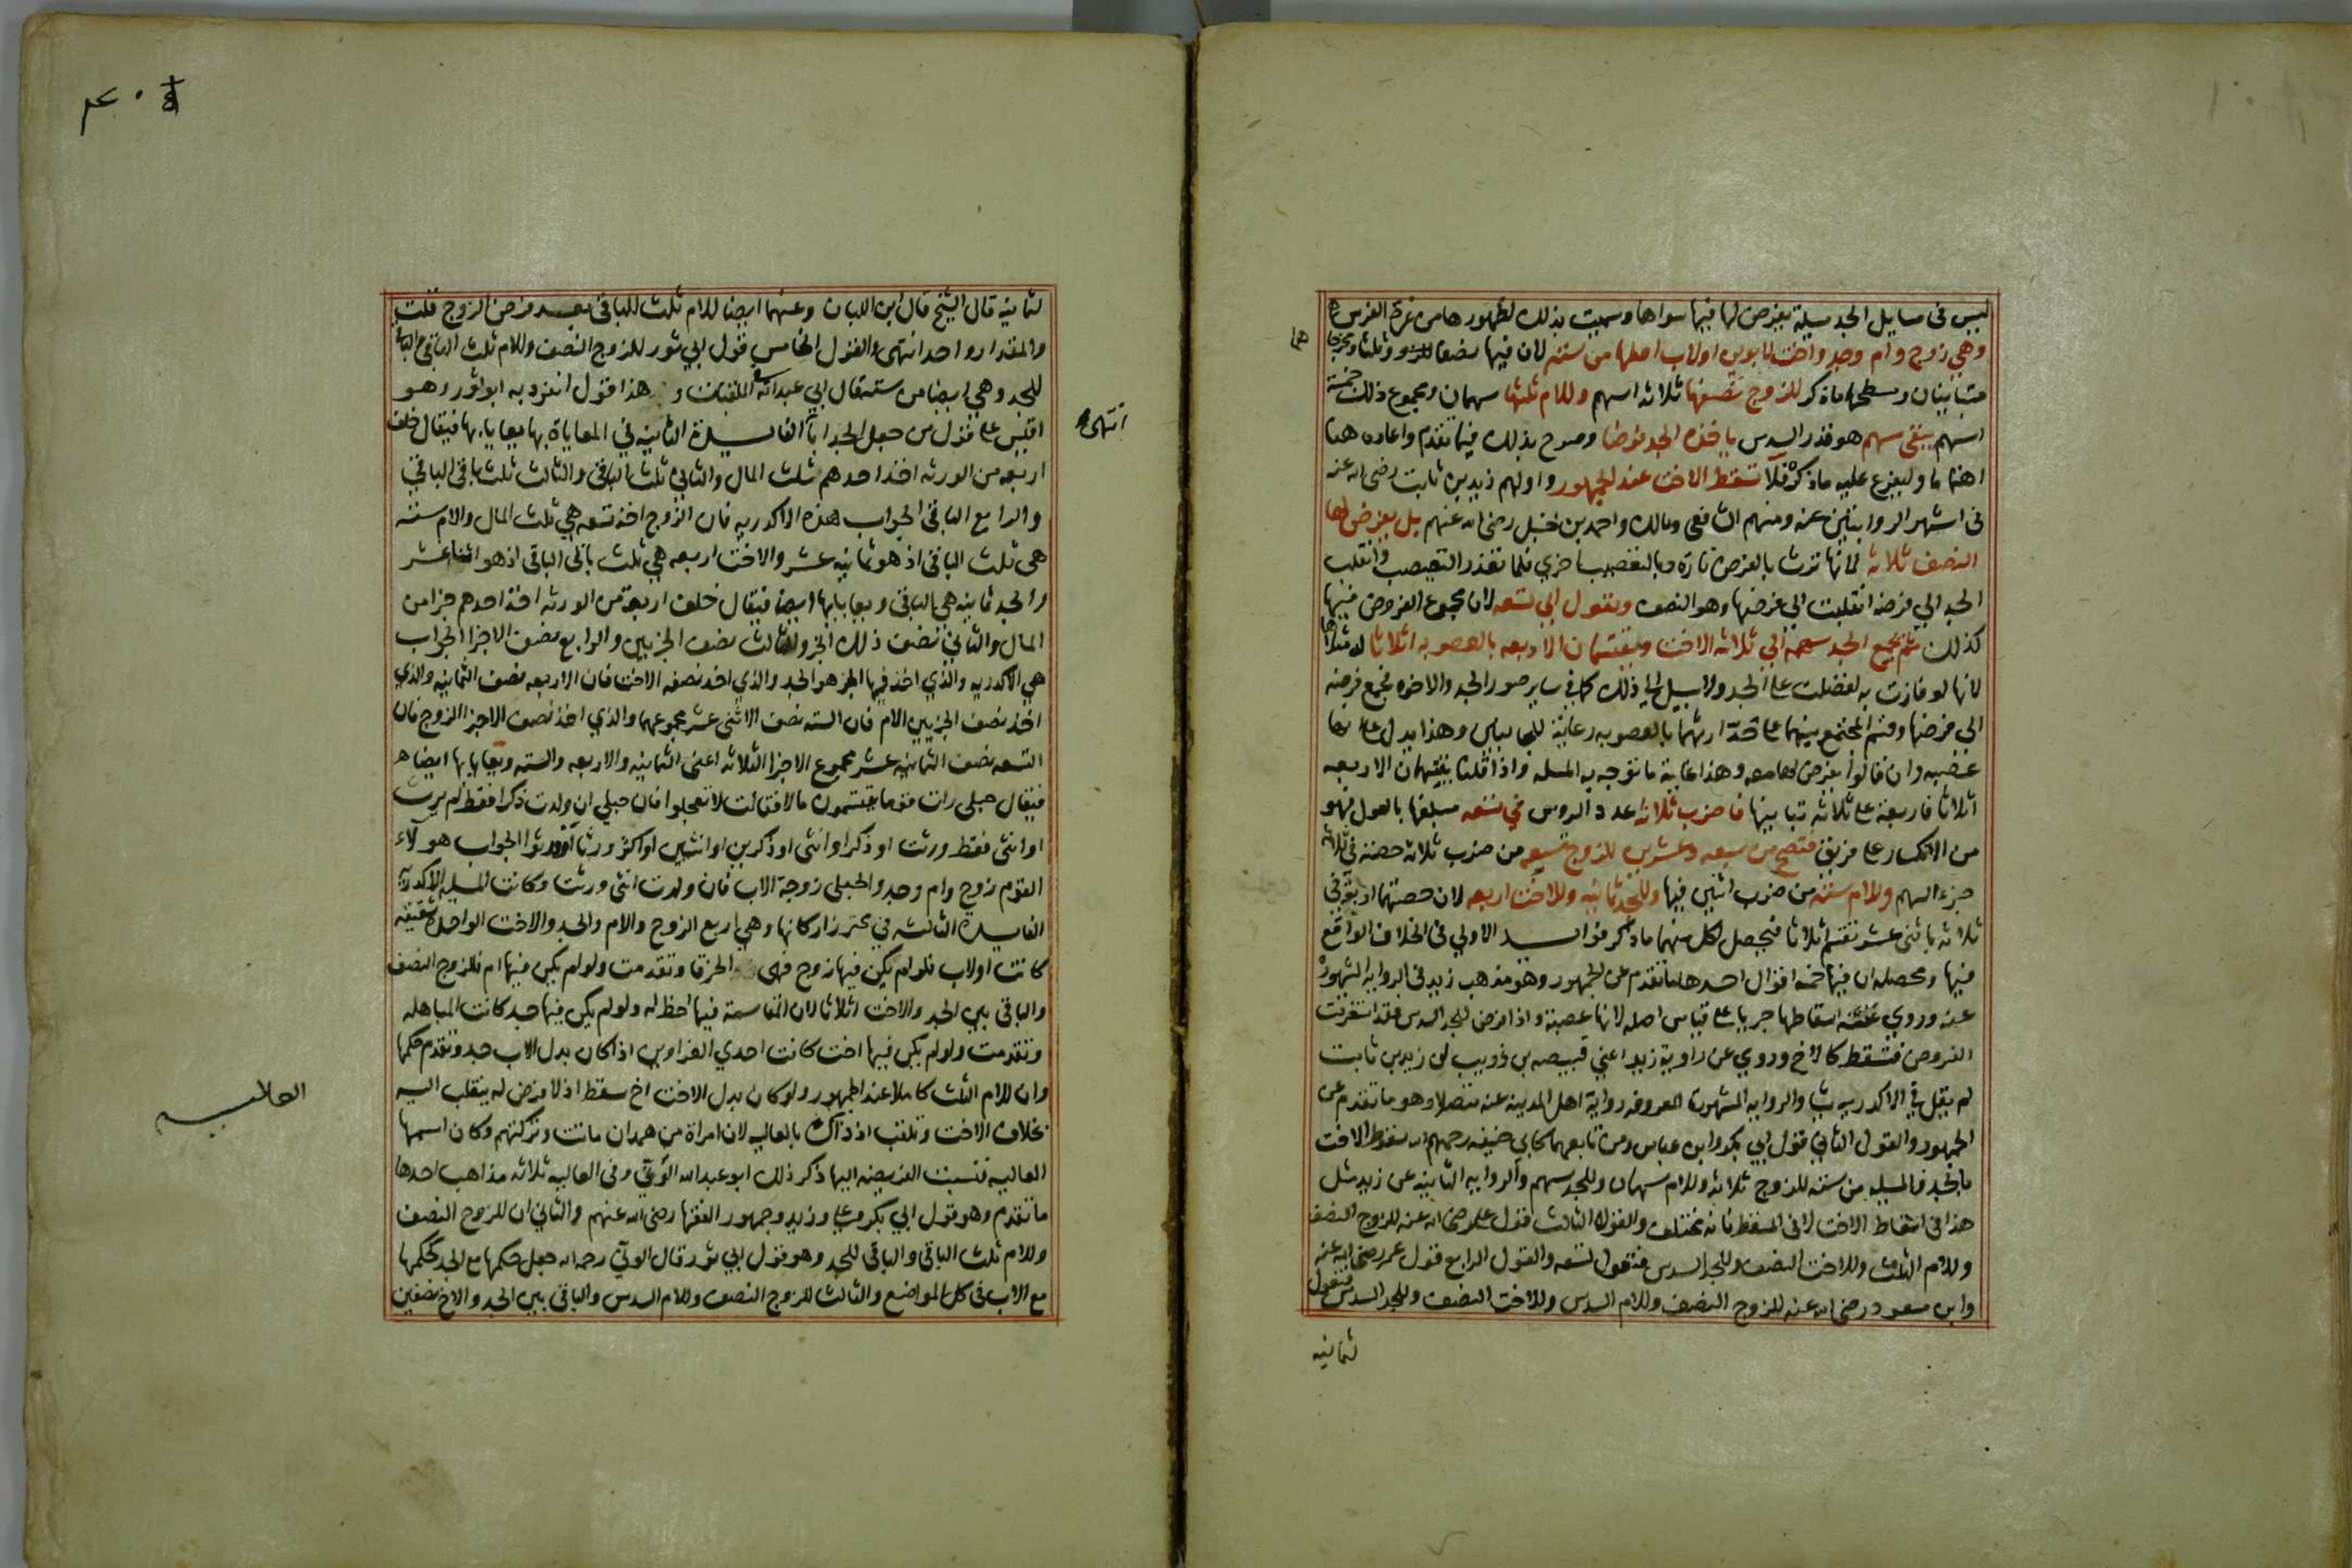 ليس فى مسايل الجد مسيلة يفرض لها فيها سواها وسميت بذلك لظهورها من غرة الفرس
وهي زوج وام وجد واخت لابوين اولاب اصلها من ستة لان فيها نصفا للزوج وثلثا ومخرجا
هما
متباينان ومسطحهما ماذكر للزوج نصفها ثلاثة اسهم وللام ثلثها سهمان ومجموع ذلك خمسة
اسهم يبقى سهم هو قدر السدس ياخذه الجد فرضا وصرح بذلك فيما تقدم واعاده هنا
اهتماما وليفرع عليه ماذكره فلا تسقط الاخت عند الجمهور واولهم زيد بن ثابت رضى الله عنه
فى اشهر الروايتين عنه ومنهم الشافعى ومالك واحمد بن حنبل رضى الله عنهم بل يفرض لها
النصف ثلاثة لانها ترث بالفرض تارة وبالتعصيب اخري فلما تعذر التعصيب وانقلب
الجد الي فرضه انقلبت الي فرضها وهو النصف وتعول الي تسعه لان مجموع الفروض فيها
كذلك ثم يجمع الجد سهمه الي ثلاثة الاخت ويقتسمان الاربعه بالعصوبه اثلاثا له مثلاها
لانها لو فازت به لفضلت على الجد ولا سبيل الي ذلك كما في ساير صور الجد والاخوه فجمع فرضه
الى فرضها وقسم المجتمع بينهما على قدر ارثهما بالعصوبه رعاية للجانبين وهذا يدل على انها
عصبه وان قالوا يفرض لها معه وهذا غاية ما توجه به المسله واذا قلنا يقتسمان الاربعه
اثلاثا فاربعة على ثلاثه تباينها فاضرب ثلاثه عدد الروس في تسعه مبلغها بالعول فهو
من الانكسار على فريق فتصح من سبعه وعشرين للزوج تسعه من ضرب ثلاثه حصته في ثلاثه
جزء السهم وللام ستة من ضرب اثنين فيها وللجد ثمانيه وللاخت اربعه لان حصتهما اربعه في
ثلاثه باثنى عشر تقسم اثلاثا فيحصل لكل منهما ماذكر فوايد الاولي فى الخلاف الواقع
فيها ومحصله ان فيها خمسه اقوال احدها ما تقدم عن الجمهور وهو مذهب زيد فى الروايه المشهوره
عنه وروي عنه اسقاطها جريا على قياس اصله لانها عصبة واذا فرض للجد السدس فقد استغرقت
الفروض فتسقط كالاخ وروي عن راوية زيد اعني قبيصه بن ذويب ان زيد بن ثابت
لم يقل في الاكدريه شيا والروايه المشهوره المعروفه رواية اهل المدينه عنه متصلا وهو ما تقدم عن
الجمهور والقول الثاني قول ابي بكر وابن عباس ومن تابعهما كابي حنيفه رحمهم الله سقوط الاخت
بالجد فالمسيله من سته للزوج ثلاثه وللام سهمان وللجد سهم والروايه الثانيه عن زيد مثل
هذا فى اسقاط الاخت لا فى المسقط فانه مختلف والقول الثالث قول على رضى الله عنه للزوج النصف
وللام الثلث وللاخت النصف وللجد السدس فتعول لتسعه والقول الرابع قول عمر رضى الله عنه
وابن مسعود رضى الله عنه للزوج النصف وللام السدس وللاخت النصف وللجد السدس فتعول
ثمانيه
لثمانيه قال الشيخ قال ابن اللبان وعنهما ايضا للام ثلث الباقى بعد فرض الزوج قلت
والمقدار واحد انتهى والقول الخامس قول ابي ثور للزوج النصف وللام ثلث الباقى والباقى
للجد وهي ايضا من سته قال ابي عبد الله هذا قول انفرد به ابو ثور وهو
اقيس على قول من جعل الجد ابا الفايدة الثانيه في المعاياة بها يعايا بها فيقال خلف
انتهى
اربعه من الورثه اخذ احدهم ثلث المال والثاني ثلث الباقى والثالث ثلث باقى الباقي
والرابع الباقى الجواب هذه الاكدريه فان الزوج اخذ تسعه هي ثلث المال والام سته
هى ثلث الباقى اذ هو ثمانيه عشر والاخت اربعه هي ثلث باقى الباقى اذ هو اثنا عشر
والجد ثمانيه هي الباقى ويعايا بها ايضا فيقال خلف اربعة من الورثه اخذ احدهم جزا من
المال والثاني نصف ذلك الجزو والثالث نصف الجزيين والرابع نصف الاجزا الجواب
هي الاكدريه والذي اخذ فيها الجز هو الجد والذي اخذ نصفه الاخت فان الاربعه نصف الثمانيه والذي
اخذ نصف الجزيين الام فان السته نصف الاثنى عشر مجموعهما والذي اخذ نصف الاجزا الزوج فان
التسعه نصف الثمانيه عشر مجموع الاجزا الثلاثه اعنى الثمانيه والاربعه والسته ويعايا بها ايضا
فيقال حبلى رات قوما يقتسمون مالا فقالت لا تعجلوا فان حبلي ان ولدت ذكرا فقط لم يرث
او انثى فقط ورثت او ذكرا وانثى او ذكرين او انثيين او اكثر ورثوا الجواب هولاء
القوم زوج وام وجد والحبلى زوجة الاب فان ولدت انثى ورثت وكانت المسيله الاكدريه
الفايدة الثالثه في محترز اركانها وهي اربع الزوج والام والجد والاخت الواحدة شقيقه
كانت اولاب فلو لم يكن فيها زوج فهى الخرقا وتقدمت ولو لم يكن فيها ام فللزوج النصف
والباقى بين الجد والاخت اثلاثا لان المقاسمة فيها احظ له ولو لم يكن فيها جد كانت المباهله
وتقدمت ولو لم يكن فيها اخت كانت احدي الغراوين اذا كان بدل الاب جد وتقدم حكمها
وان للام الثلث كاملا عند الجمهور ولو كان بدل الاخت اخ سقط اذ لا فرض له ينقلب اليه
العاليه
بخلاف الاخت وتلقب اذ ذاك بالعاليه لان امراة من همدان ماتت وتركتهم وكان اسمها
العاليه فنسبت الفريضه اليها ذكر ذلك ابو عبد الله الونى وفى العاليه ثلاثه مذاهب احدها
ما تقدم وهو قول ابي بكر وعلى وزيد وجمهور الفقها رضى الله عنهم والثاني ان للزوج النصف
وللام ثلث الباقى والباقى للجد وهو قول ابي ثور قال الوني رحمه الله جعل حكمها مع الجد كحكمها
مع الاب فى كل المواضع والثالث للزوج النصف وللام السدس والباقى بين الجد والاخ نصفين